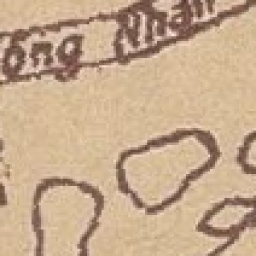 ông Nhân